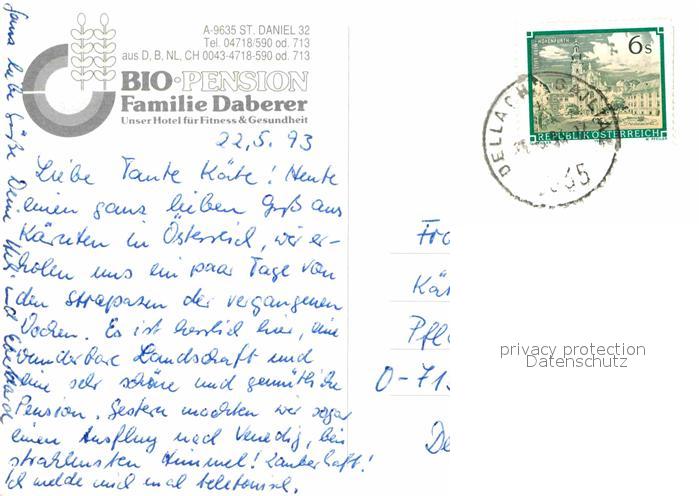 A-9635 ST. DANIEL 32
Tel. 04718/590 od. 713
aus D, B, NL, CH 0043-4718-590 od. 713
BIO·PENSION
Familie Daberer
Unser Hotel für Fitness & Gesundheit
22.5.93
Liebe Tante Käte! Heute
einen ganz lieben Gruß aus
Kärnten in Österreich, wir er-
holen uns ein paar Tage von
den Strapazen der vergangenen
Wochen. Es ist herrlich hier, eine
wunderbare Landschaft und
eine sehr schöne und gemütliche
Pension. Gestern machten wir sogar
einen Ausflug nach Venedig, bei
strahlensten Himmel! Zauberhaft!
Ich melde mich mal telefonisch.
Ganz liebe Grüße Deine und
STIFT REIN-HOHENFURTH
6s
REPUBLIK ÖSTERREICH
DELLACH
Fra
Kät
Pfl
O-71
De
privacy protection
Datenschutz